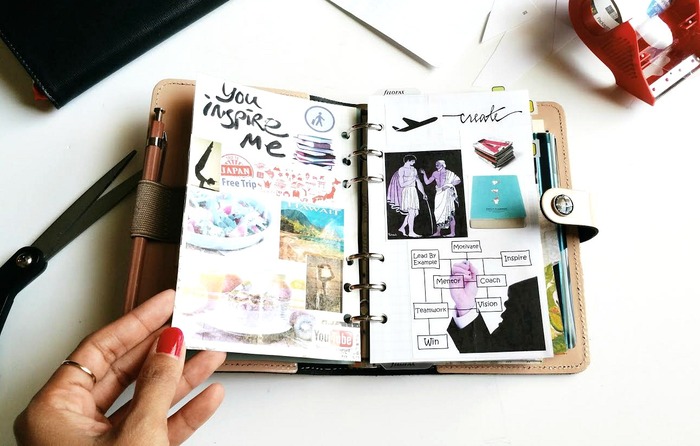 You
inspire
me
JAPAN
Free Trip
HAWAII
YouTube
filofax
create
Motivate
Lead By
Example
Inspire
Mentor
Coach
Teamwork
Vision
Win